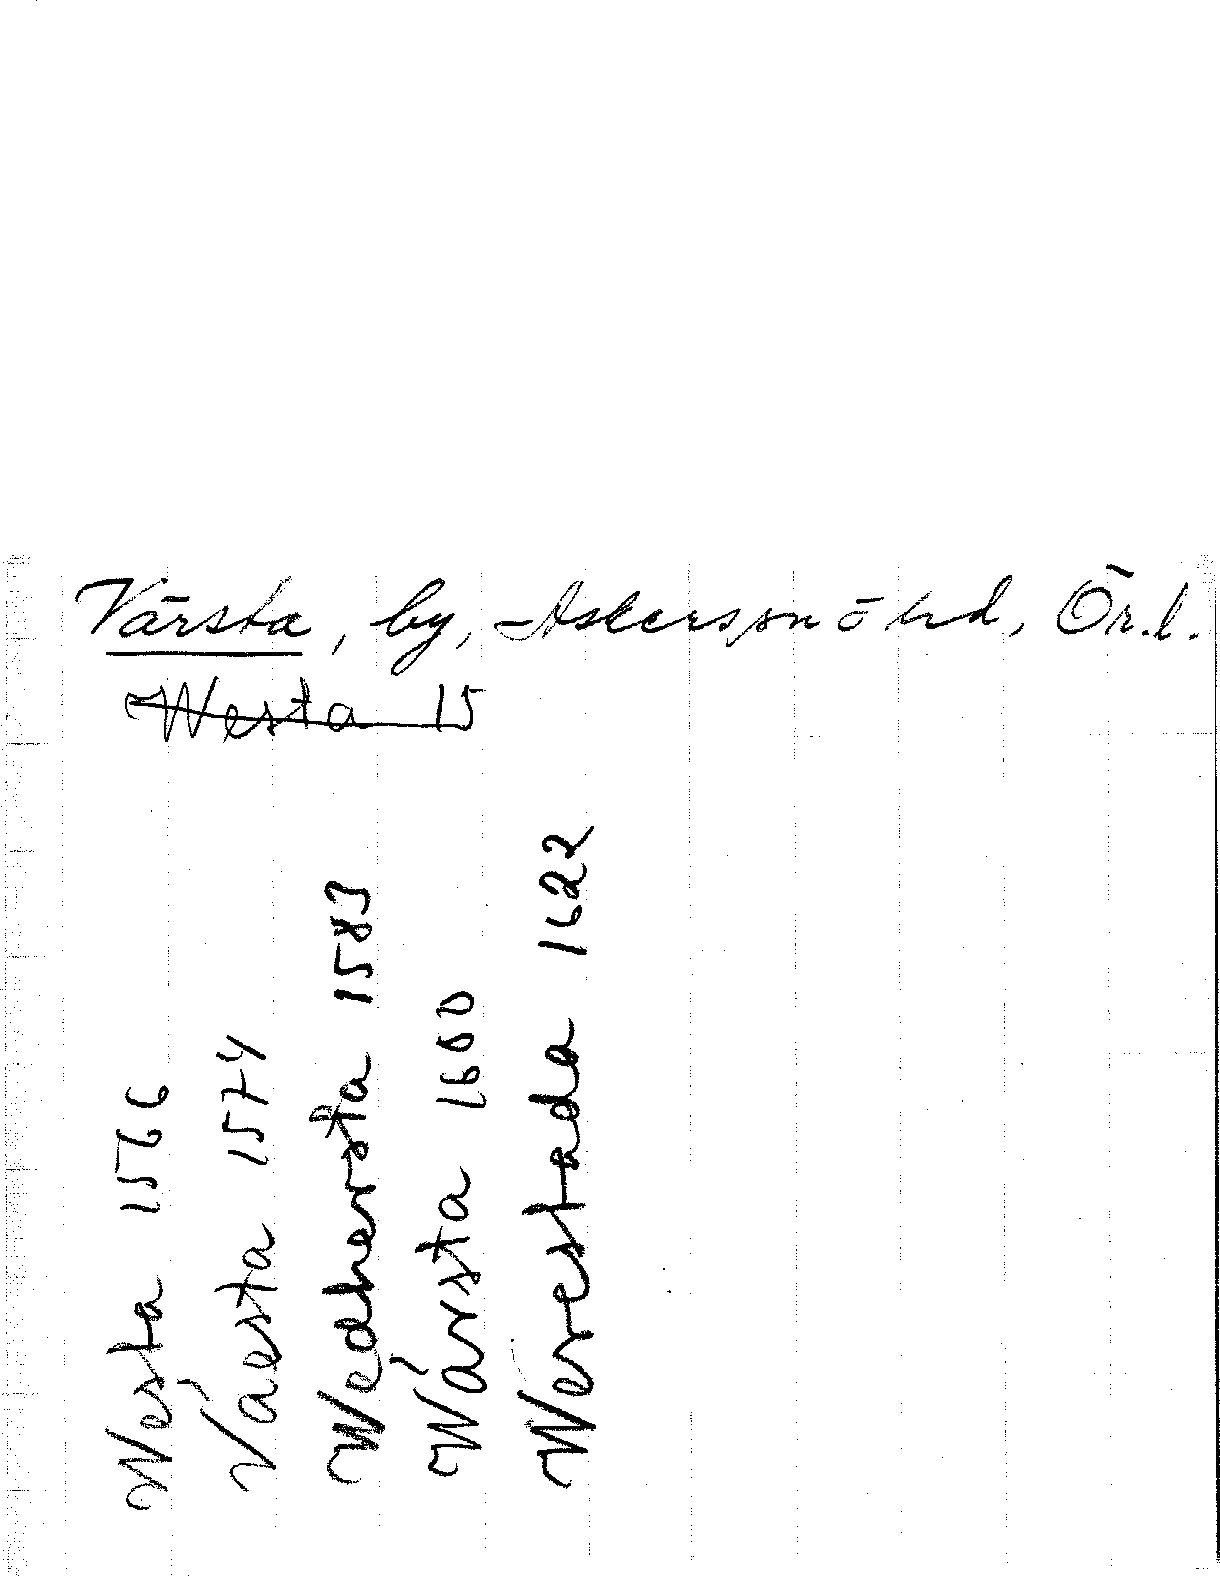 Värsta, by, Askers sn o hd, Ör.l.
Westa 15
Westa 1566
Váesta 1574
Wedhersta 1583
Wársta 1600
Werestada 1622